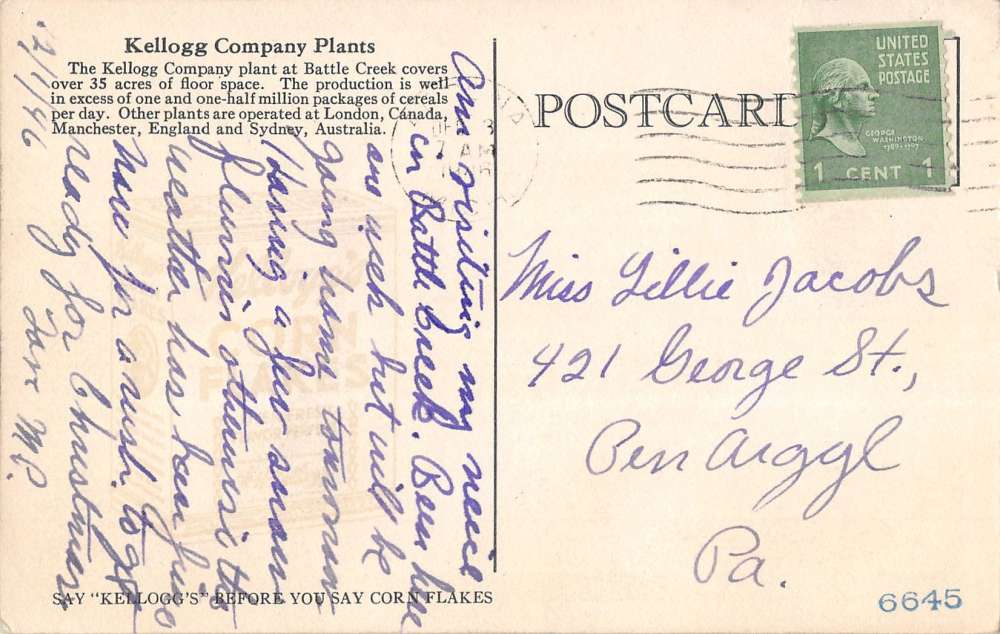 Kellogg Company Plants
The Kellogg Company plant at Battle Creek covers
over 35 acres of floor space. The production is well
in excess of one and one-half million packages of cereals
per day. Other plants are operated at London, Canada,
Manchester, England and Sydney, Australia.
12/7/46
Am visiting my niece
in Battle Creek. Been here
one week but will be
going home tomorrow
Having a few snow
flurries otherwise the
weather has been fine
Now for a rush to get
ready for Christmas
Love M.P.
SAY "KELLOGG'S" BEFORE YOU SAY CORN FLAKES
POSTCARD
UNITED
STATES
POSTAGE
GEORGE
WASHINGTON
1789-1797
1 CENT 1
7 AM
Miss Lillie Jacobs
421 George St.,
Pen Argyl
Pa.
6645
Kellogg's
CORN
FLAKES